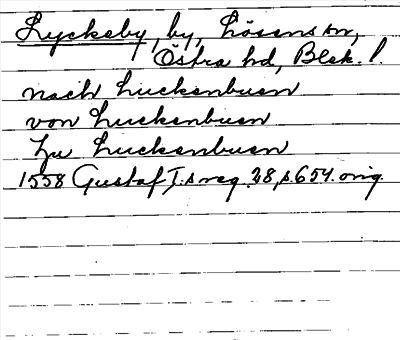 Lyckeby, by, Lösens sn,
Östra hd, Blek. l.
nach Luckenbuen
von Luckenbuen
Zu Luckenbuen
1558 Gustaf I:s reg. 28, s. 654. orig.